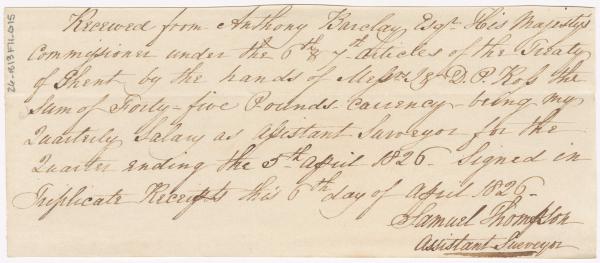 Received from Anthony Barclay Esqr. His Majesty's
Commissioner under the 6th & 7th articles of the Treaty
of Ghent by the hands of Messrs J & D. P. Ross the
Sum of Forty-five Pounds currency - being my
Quarterly Salary as Assistant Surveyor for the
Quarter ending the 5th April 1826. Signed in
Triplicate Receipts this 6th day of April 1826 -
Samuel Thompson
Assistant Surveyor